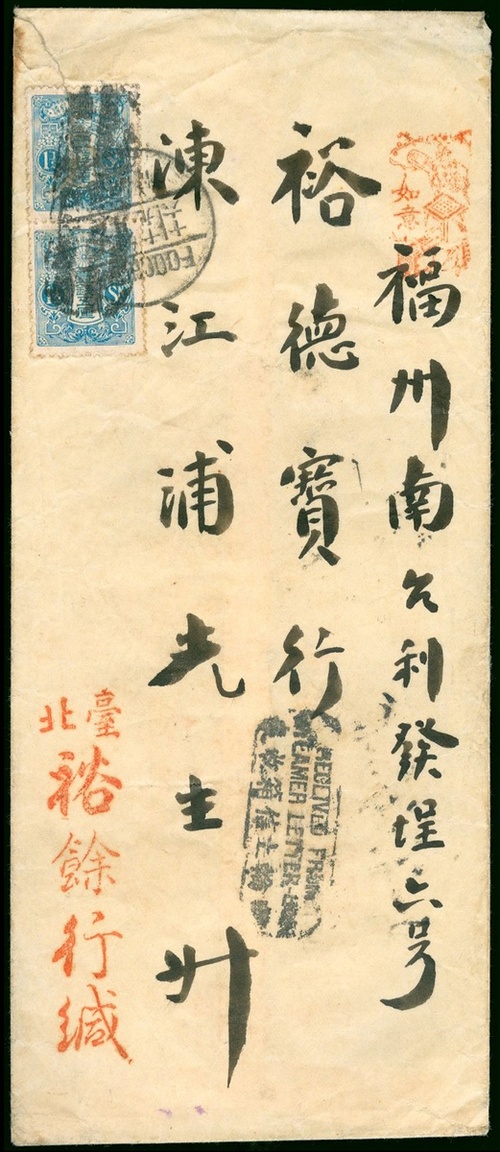 如意
福州南台利發埕六号
裕德寶行
陳江浦光主升
臺北
裕餘行緘
RECEIVED FROM
STEAMER LETTER-
FOOC